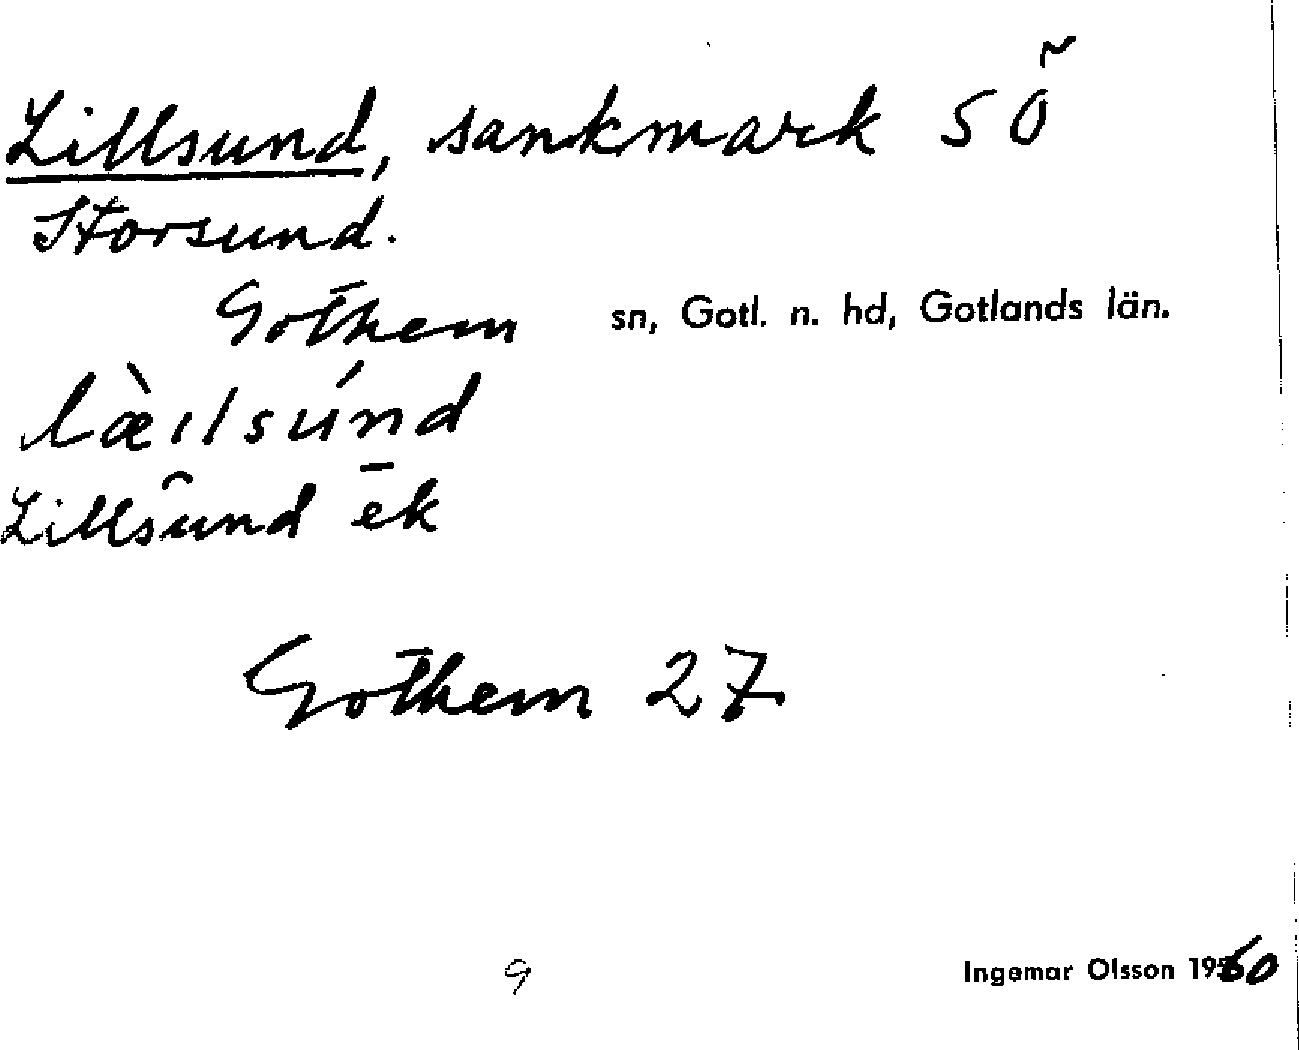 Lillsund, sankmark SÖ
Storsund.
Gothem sn, Gotl. n. hd, Gotlands län.
læ̀ılsúnd
Lillsund ek
Gothem 27
9
Ingemar Olsson 1960